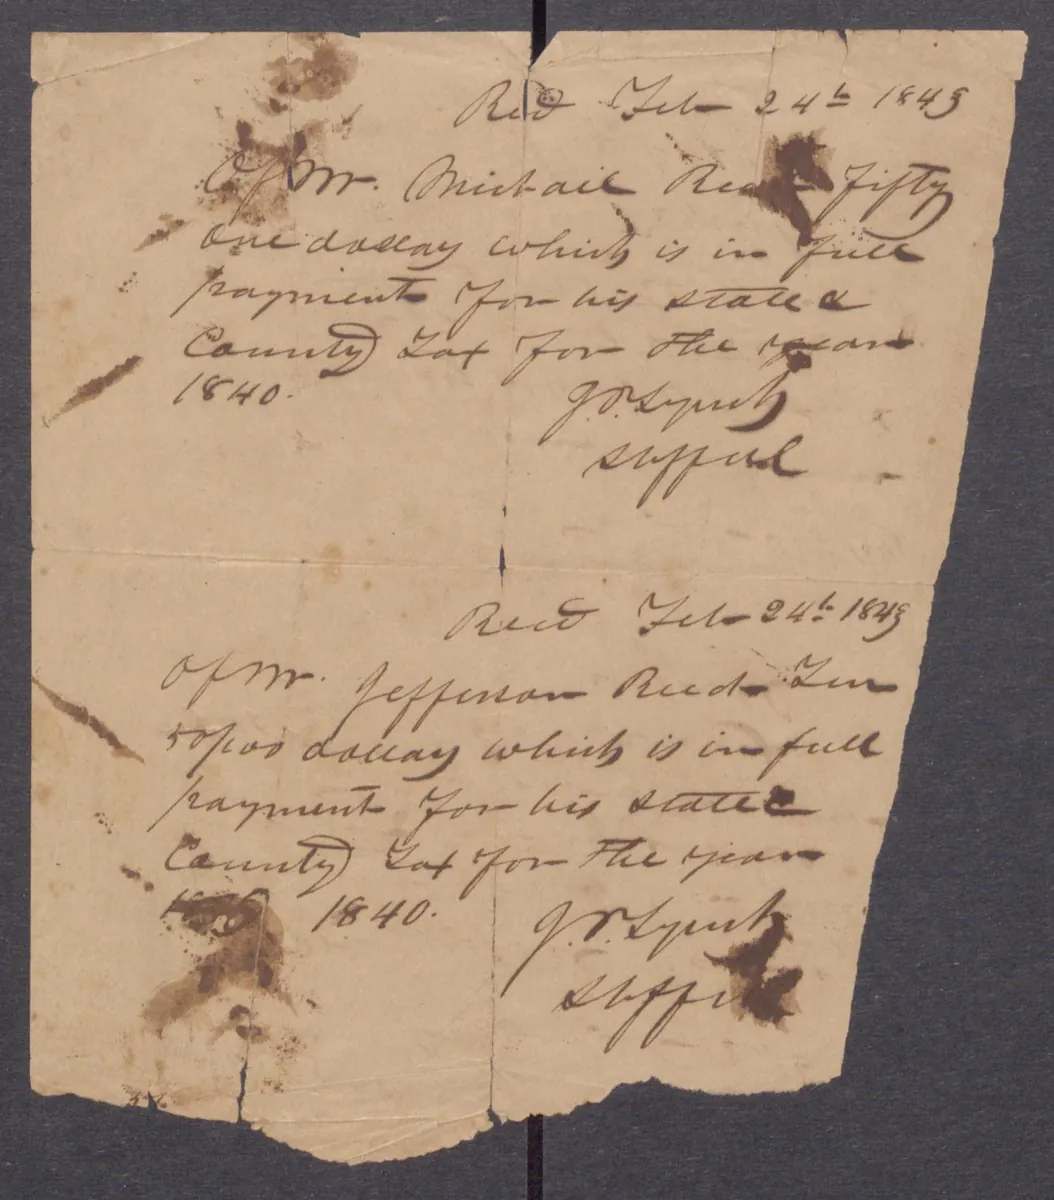 Recd Feb 24th 1843
Of Mr. Michail Reed Fifty
one dollars which is in full
payment for his state &
County Tax for the year
1840.
J. P. Lynch
Recd Feb 24th 1843
Of Mr. Jefferson Reed Ten
50/100 dollars which is in full
payment for his state &
County Tax for the year
1840.
J. P. Lynch